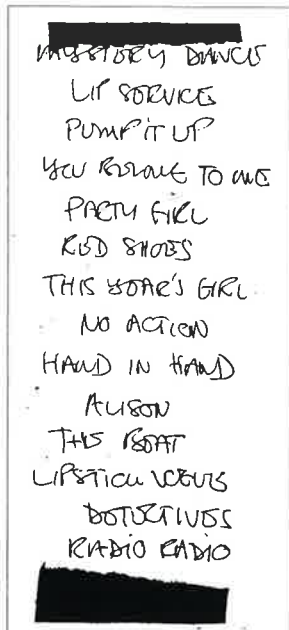 MYSTERY DANCE
LIP SERVICE
PUMP IT UP
YOU BELONG TO ME
PARTY GIRL
RED SHOES
THIS YEAR'S GIRL
NO ACTION
HAND IN HAND
ALISON
THIS BEAT
LIPSTICK VOGUE
DETECTIVES
RADIO RADIO